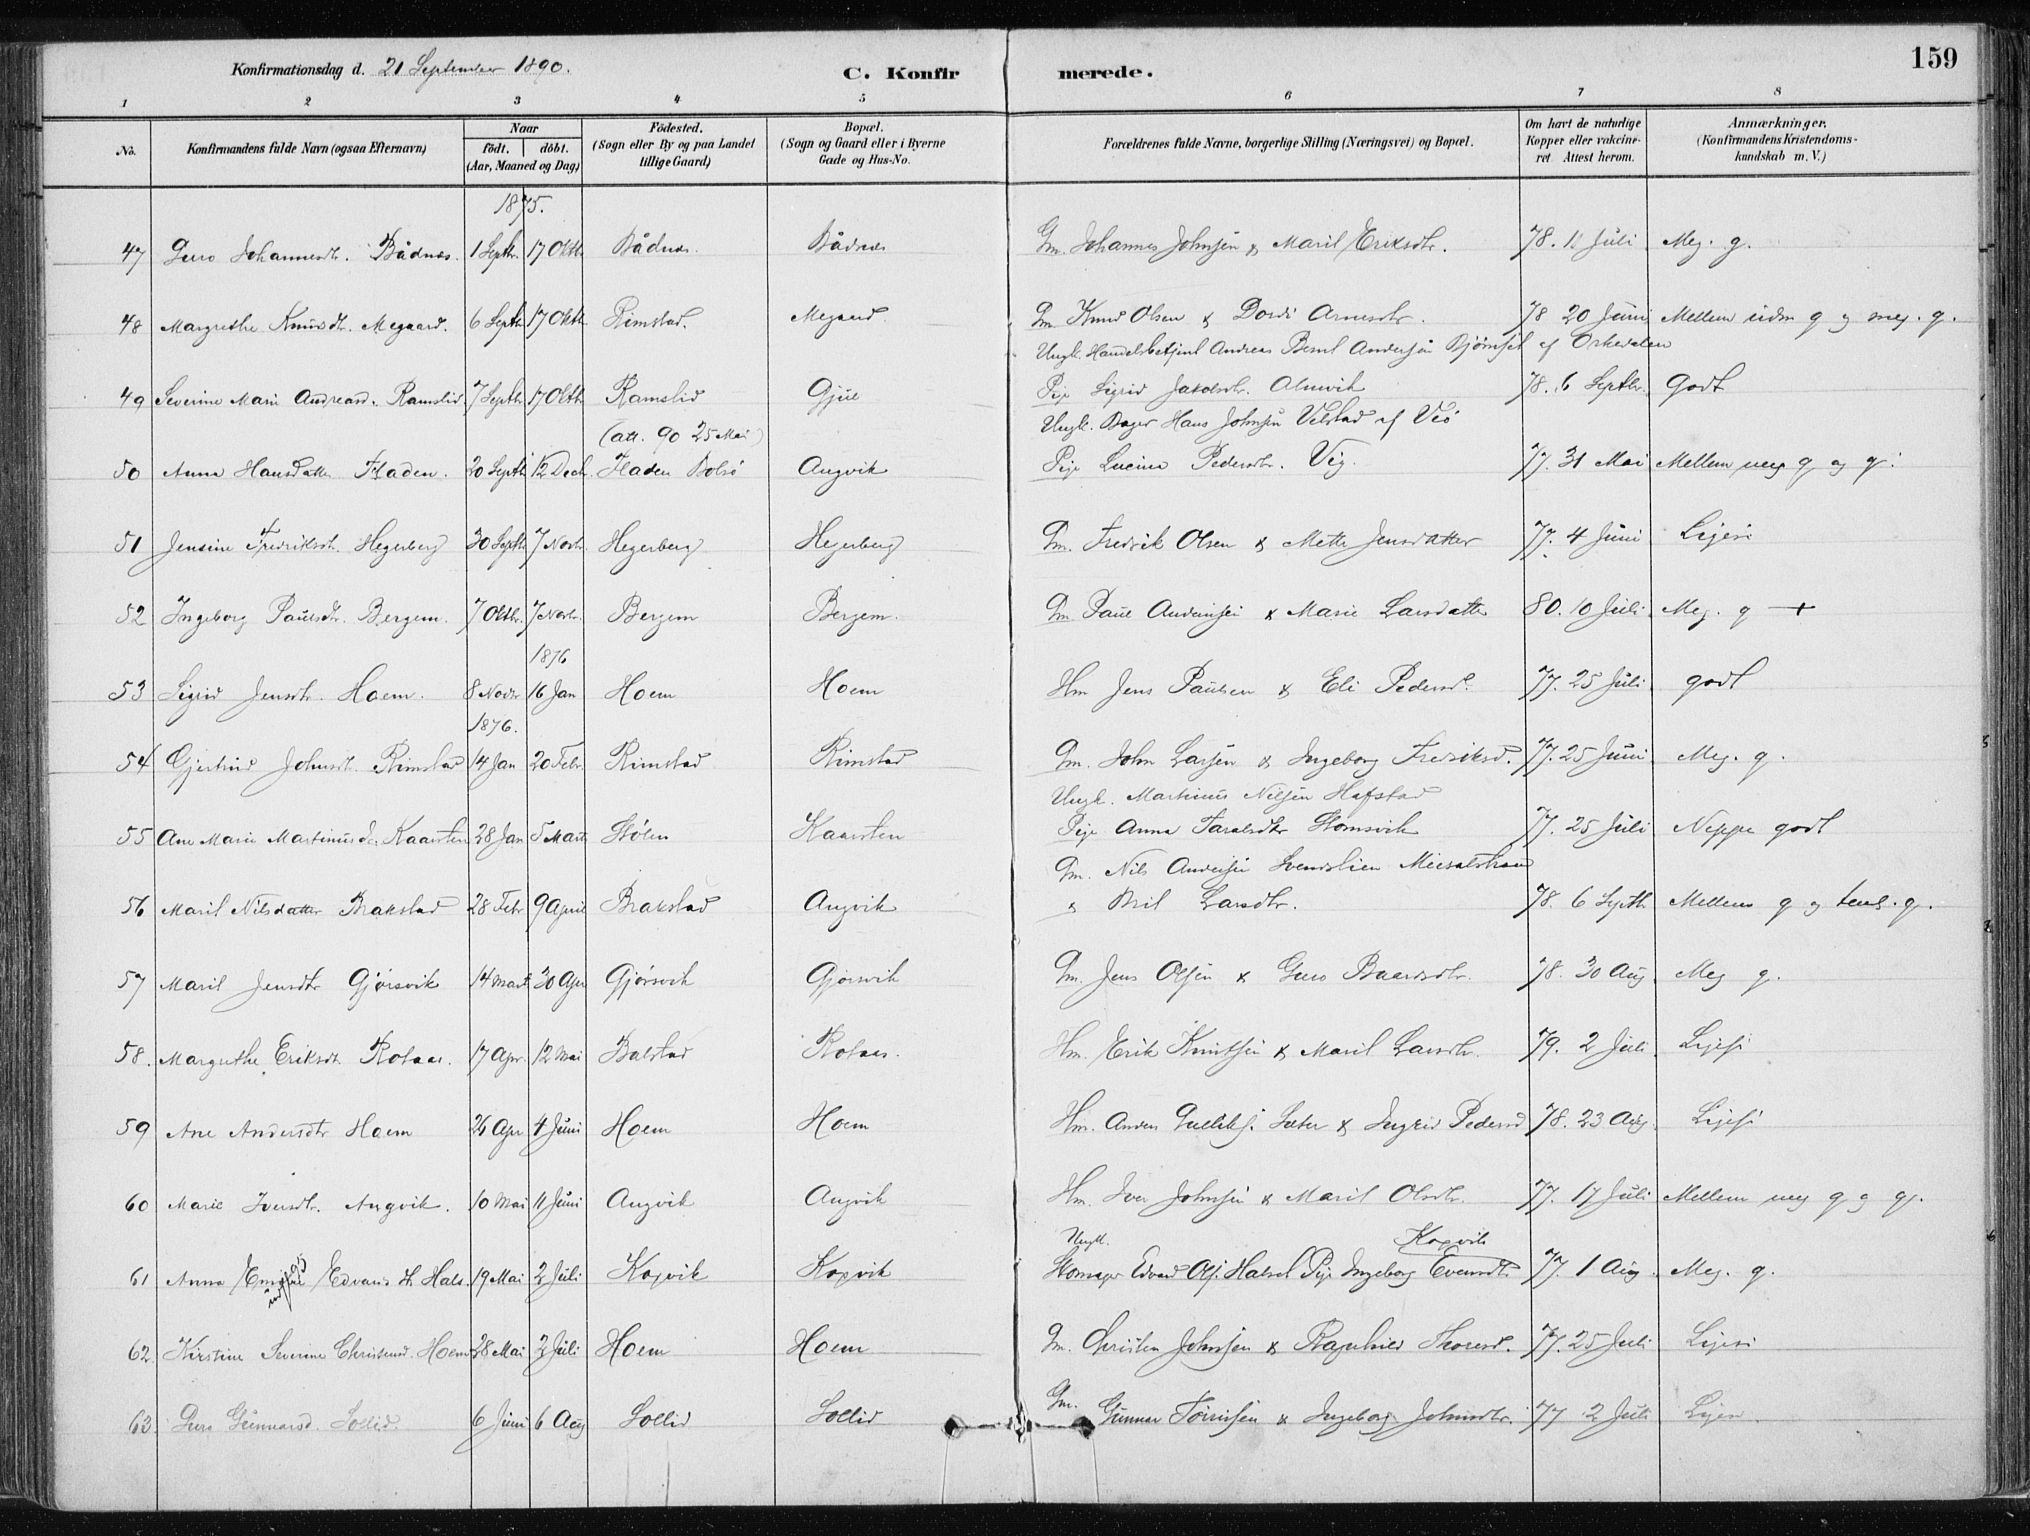 159
Konfirmationsdag d. 21 September 1890. C. Konfirmerede.
1 2 3 4 5 6 7 8
No. Konfirmandens fulde Navn (ogsaa Efternavn) Naar født. døbt. (Aar, Maaned og Dag) Födested. (Sogn eller By og paa Landet tillige Gaard) Bopæl. (Sogn og Gaard eller i Byerne Gade og Hus-No. Forældrenes fulde Navne, borgerlige Stilling (Næringsvei) og Bopæl. Om havt de naturlige Kopper eller vakcineret. Attest herom. Anmærkninger. (Konfirmandens Kristendomskundskab m. V.)
1875.
47 Guro Johannesdtr. Bådnes. 1 Septbr. 17 Oktbr Bådnes. Bådnes Gm. Johannes Johnsen & Marit Eriksdtr. 78. 11 Juli Meg. g.
48 Margrethe Knudsdtr. Megaard. 6 Septbr 17 Oktbr Rimstad. Megaard Gm. Knud Olsen & Dordi Arnesdtr. 78 20 Juni Mellem udm g og meg. g.
Ungk. Handelsbetjent Andreas Bernt Andersen Bjørnset af Orkedalen
49 Severine Marie Andreasd. Ramslid 7 Septbr 17 Oktbr Ramslid Gjül Pige Sigrid Jakobsdtr. Alnevik 78. 6 Septbr. Godt
(att. 90 25 Mai) Ungk. Bager Hans Johnsen Velstad af Veö
50 Anna Hansdatter Fladen. 20 Septbr 12 Decb. Fladen Bolsö Angvik Pige Lucine Pedersdtr. Vig. 77. 31 Mai Mellem meg g og g.
51 Jensine Fredriksdtr. Hegerberg 30 Septbr 7 Novbr. Hegerberg Hegerberg Gm. Fredrik Olsen & Mette Jensdatter 77. 4 Juni Ligesi
52 Ingeborg Paulsdtr. Bergem. 7 Oktbr. 7 Novbr. Bergem Bergem. Gm Paul Andersen & Marie Larsdatter 80. 10 Juli Meg. g +
1876
53 Sigrid Jensdtr. Hoem. 8 Novbr 16 Jan Hoem Hoem Hm Jens Paulsen & Eli Pedersd. 77. 25 Juli godt
1876.
54 Gjertrud Johnsdt. Rimstad 14 Jan 20 Febr. Rimstad Rimstad Gm. John Larsen & Ingeborg Fredriksd. 77. 25 Juni Meg. g.
Ungk. Martinus Nilsen Hafstad
55 Ane Marie Martinusd. Kaarsten 28 Jan 5 Marts Stölen Kaarsten Pige Anna Taraldsdtr Stomsvik 77. 25 Juli Neppe godt
Gm. Nils Andersen Svendslien Meisalstrand
56 Marit Nilsdatter Brakstad 28 Febr 9 April Brakstad Angvik & Brit Larsdtr. 78. 6 Septbr Mellem g og temt. g.
57 Marit Jensdtr Gjørsvik 14 Mart 30 Apr Gjørsvik Gjørsvik Gm. Jens Olsen & Guro Baardsdtr. 78. 30 Aug. Meg g.
58. Margrethe Eriksdt. Rotaas. 17 Apr. 12 Mai Balstad Rotaas. Hm. Erik Knutsen & Marit Larsdtr. 79. 2 Juli Ligesi
59 Ane Andersdtr Hoem 26 Apr 4 Juni Hoem Hoem Hm. Anders Gulliks. Sæter & Ingrid Pedersd 78. 23 Aug. Ligesi
60 Marie Iversdtr. Angvik. 10 Mai 11 Juni Angvik Angvik Hm. Iver Johnsen & Marit Olsdtr. 77. 17 Juli Mellem meg g og g.
Ungk. Koxvik
61 Anna Edvardsdt. Hals. 19 Mai 2 Juli Koxvik Koxvik Skomager Edvard Ols. Halsel Pige Ingeborg Evensdt. 77. 1 Aug. Meg. g.
62 Kirstine Severine Christensd. Hoem 28 Mai 2 Juli Hoem Hoem Gm. Christen Johnsen & Ragnhild Thoresd. 77. 25 Juli Ligesi
63 Guro Gunnarsd. Sollid. 6 Juni 6 Aug Sollid Sollid Gm. Gunnar Torrisen & Ingeborg Johnsdtr. 77 2 Juli Ligesi